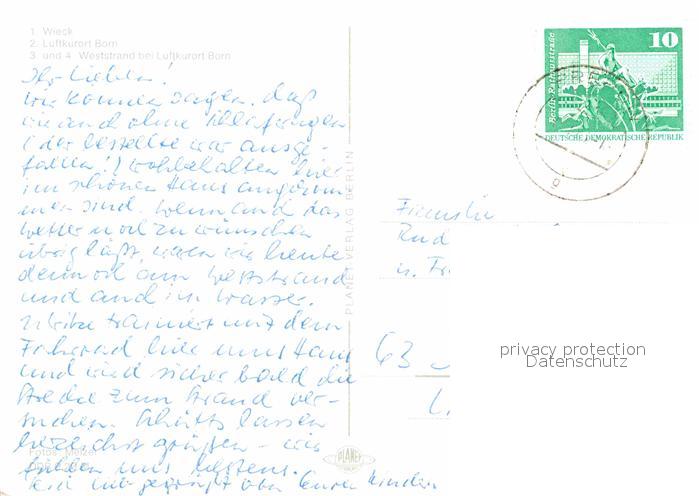 1. Wieck
2. Luftkurort Born
3. und 4. Weststrand bei Luftkurort Born
Ihr Lieben!
wir können sagen, daß
wir auch ohne
(der bestellte war ausge-
fallen!) wohlbehalten hier
im schönen Haus angekom
men sind. Wenn auch das
Wetter noch zu wünschen
übrig läßt, waren wir heute
dennoch am Weststrand
und auch im Wasser.
trainiert mit dem
Fahrrad hier ums Haus
und wird sicher bald die
Strecke zum Strand ver-
suchen. lassen
herzlichst grüßen – wir
fühlen uns bestens.
Seid lieb gegrüßt von Euren Kindern
Fotos: Melzer
PLANET-VERLAG BERLIN
PLANET
10
Berlin-Rathausstraße
DEUTSCHE DEMOKRATISCHE REPUBLIK
Familie
Rud
u. Fr
63
privacy protection
Datenschutz